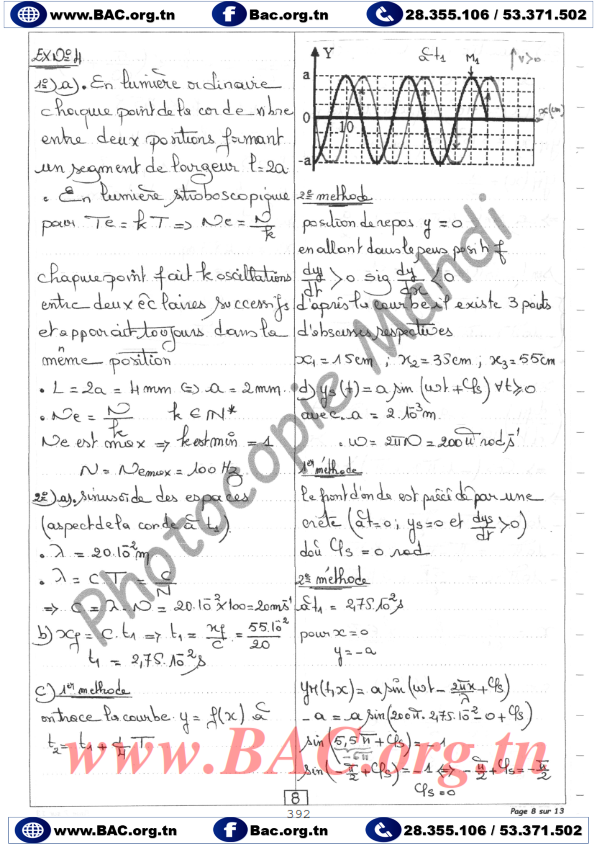 www.BAC.org.tn Bac.org.tn 28.355.106 / 53.371.502
Ex N°4
1°) a) • En lumière ordinaire
chaque point de la corde vibre
entre deux positions formant
un segment de largeur l = 2a
• En lumière stroboscopique
pour Te = kT ⇒ Ne = N/k
chaque point fait k oscillations
entre deux éclaires successifs
et apparait toujours dans la
même position
• L = 2a = 4mm ⇔ a = 2mm.
• Ne = N/k k ∈ N*
Ne est max ⇒ k est min = 1
N = Nemax = 100 Hz
2°) a) sinusoïde des espaces
(aspect de la corde à t1)
• λ = 20.10⁻² m
• λ = C.T = C/N
⇒ C = λ.N = 20.10⁻²×100 = 20ms⁻¹
b) xf = C.t1 ⇒ t1 = xf/C = 55.10⁻²/20
t1 = 2,75.10⁻² s
c) 1er méthode
on trace la courbe y = f(x) à
t2 = t1 + 1/4 T
Y à t1 M1 ↑v>0
a
0 10 x(cm)
-a
2è méthode
position de repos y = 0
en allant dans le sens positif
dy/dt > 0 sig dy/dx < 0
d'après la courbe il existe 3 points
d'abscisses respectives
x1 = 15cm ; x2 = 35cm ; x3 = 55cm
d) ys(t) = a sin(ωt + φs) ∀t ≥ 0
avec • a = 2.10⁻³ m.
• ω = 2πN = 200π rad.s⁻¹
1er méthode
le front d'onde est précédé par une
crête (à t=0 ; ys=0 et dys/dt > 0)
d'où φs = 0 rad
2è méthode
à t1 = 2,75.10⁻² s
pour x = 0
y = -a
yM(t,x) = a sin(ωt - 2πx/λ + φs)
-a = a sin(200π.2,75.10⁻² - 0 + φs)
sin(5,5π + φs) = -1
-6π
sin(-π/2 + φs) = -1 ⇔ -π/2 + φs = -π/2
φs = 0
Photocopie Mahdi
www.BAC.org.tn
8
392
Page 8 sur 13
www.BAC.org.tn Bac.org.tn 28.355.106 / 53.371.502